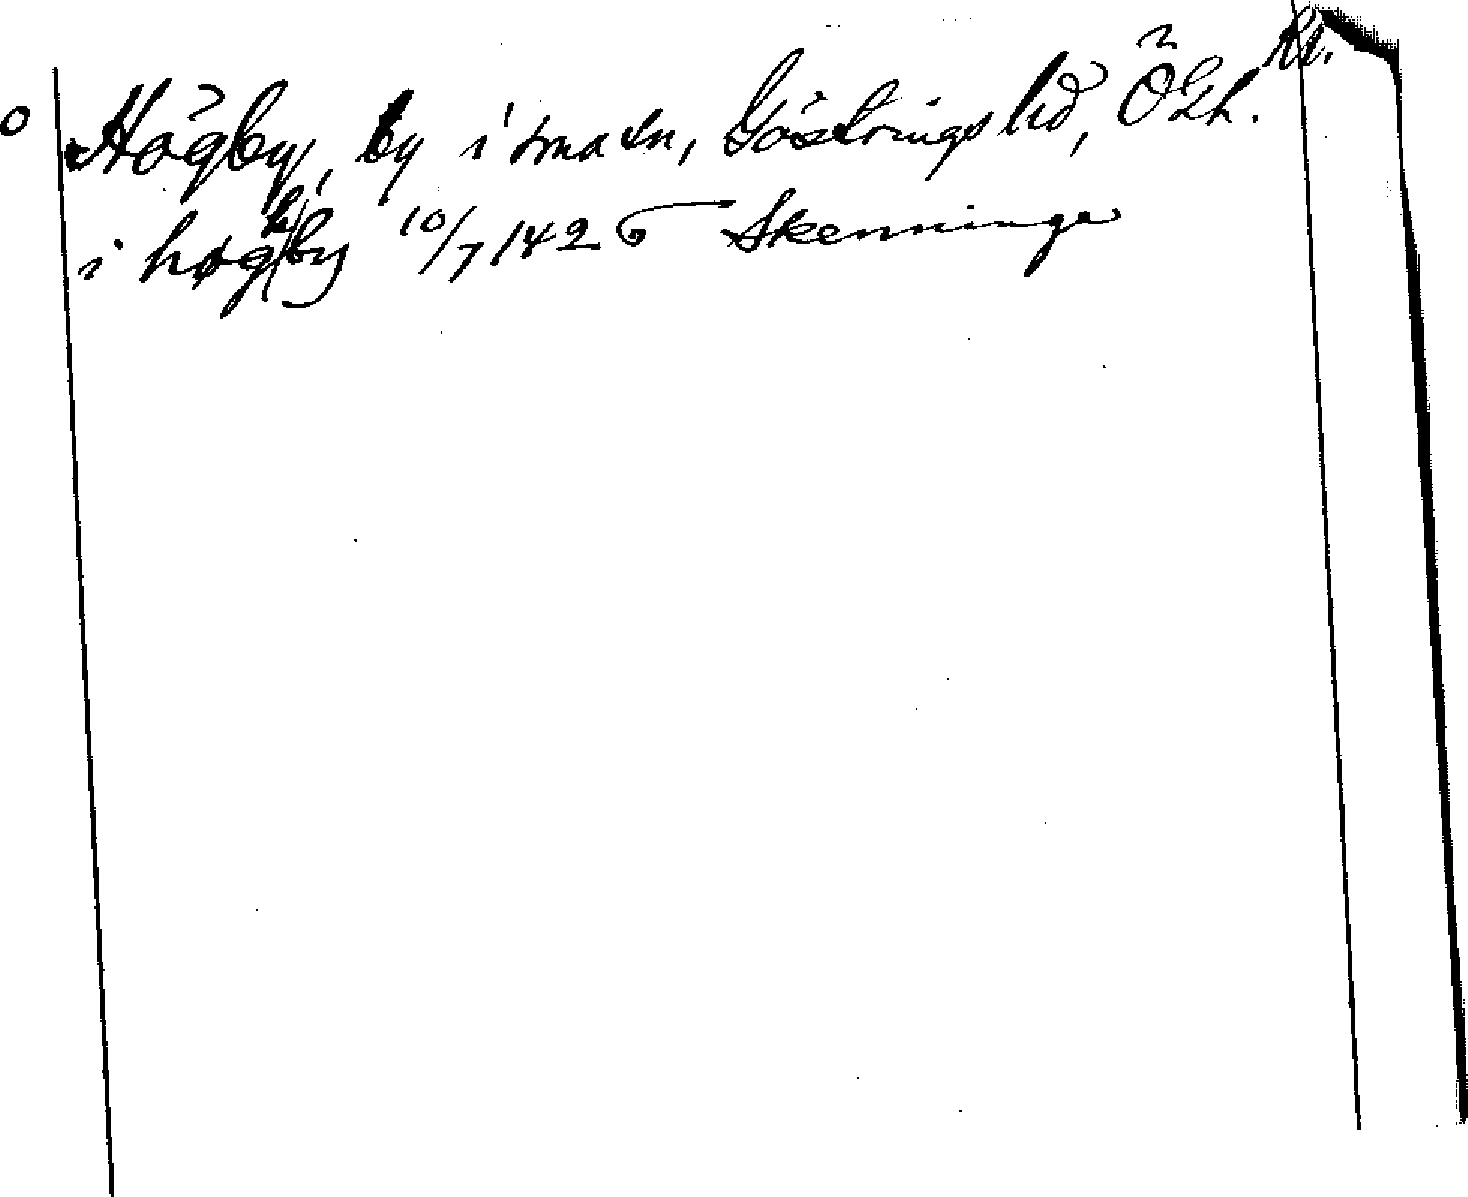 Högby, by i sma sn, Göstrings hd, Ögh. kt.
i høghby 10/7 1426 Skenninge